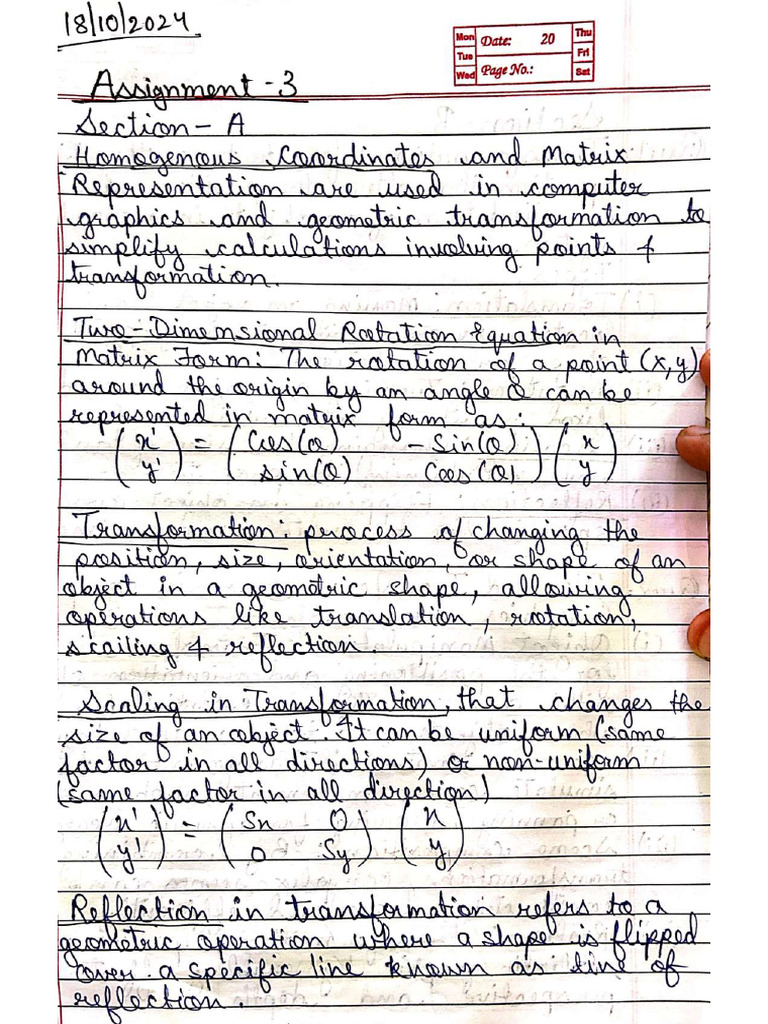 18/10/2024
Mon Tue Wed Date: 20 Page No.: Thu Fri Sat
Assignment-3
Section-A
Homogenous Coordinates and Matrix
Representation are used in computer
graphics and geometric transformation to
simplify calculations involving points &
transformation.
Two-Dimensional Rotation Equation in
Matrix Form: The rotation of a point (x,y)
around the origin by an angle θ can be
represented in matrix form as:
(x') = (Cos(θ) -Sin(θ)) (x)
(y') (sin(θ) Cos(θ)) (y)
Transformation: process of changing the
position, size, orientation, or shape of an
object in a geometric shape, allowing
operations like translation, rotation,
scailing & reflection
Scaling in Transformation, that changes the
size of an object. It can be uniform (same
factor in all directions) or non-uniform
(same factor in all direction)
(x') = (Sx 0) (x)
(y') (0 Sy) (y)
Reflection in transformation refers to a
geometric operation where a shape is flipped
over a specific line known as line of
reflection.